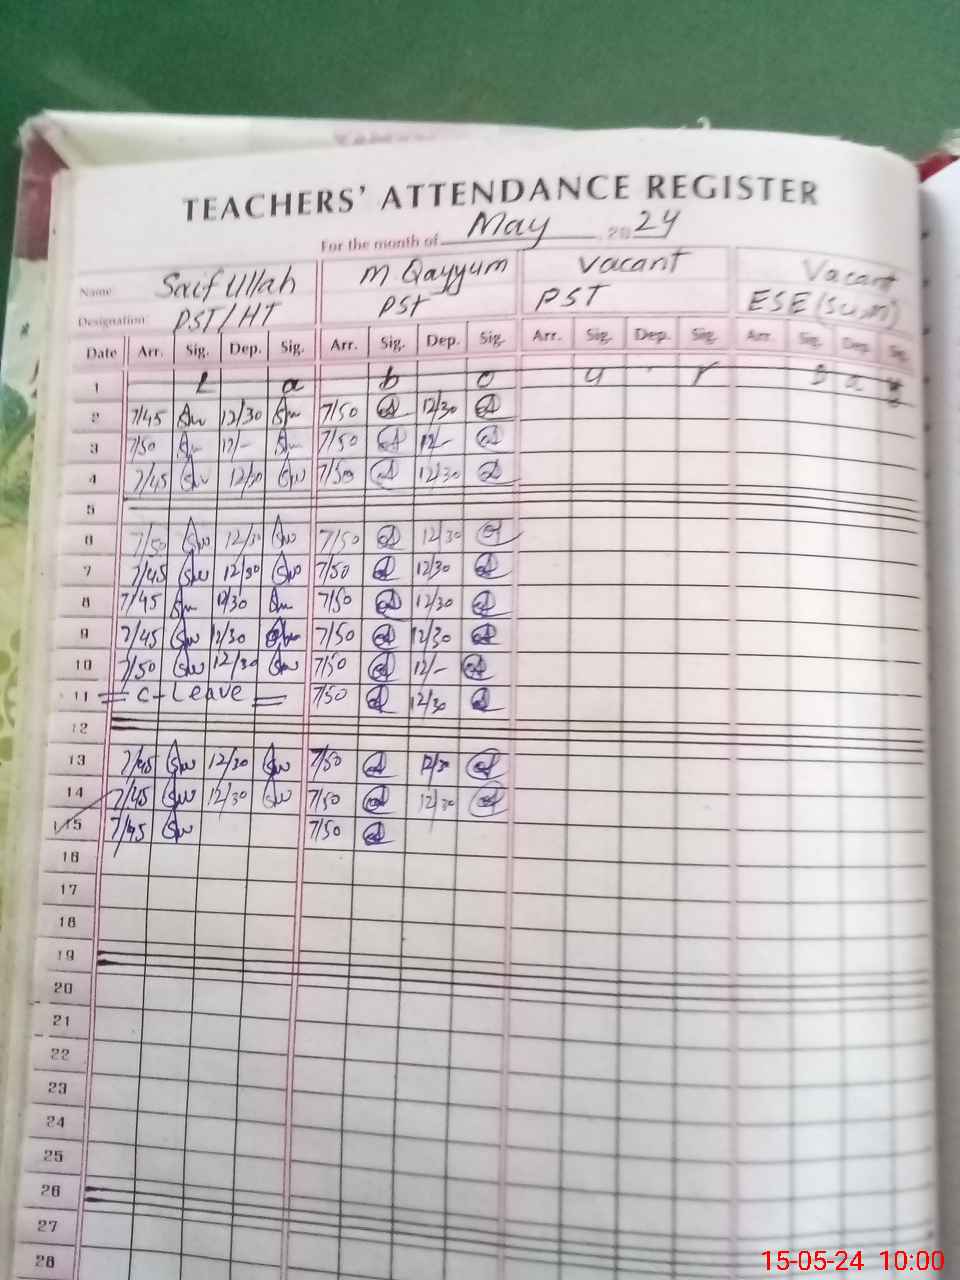 TEACHERS' ATTENDANCE REGISTER
For the month of May 2024
Name: Saif Ullah M Qayyum Vacant Vacant
Designation: PST/HT PST PST ESE
Date Arr. Sig. Dep. Sig. Arr. Sig. Dep. Sig. Arr. Sig. Dep. Sig. Arr. Sig. Dep. Sig.
1 L a b o u r D a y
2 7/45 12/30 7/50 12/30
3 7/50 12/- 7/50 12/-
4 7/45 12/30 7/50 12/30
5
6 7/50 12/30 7/50 12/30
7 7/45 12/30 7/50 12/30
8 7/45 12/30 7/50 12/30
9 7/45 12/30 7/50 12/30
10 7/50 12/30 7/50 12/-
11 = C-Leave = 7/50 12/30
12
13 7/45 12/30 7/50 12/30
14 7/45 12/30 7/50 12/30
15 7/45 7/50
16
17
18
19
20
21
22
23
24
25
26
27
28
15-05-24 10:00